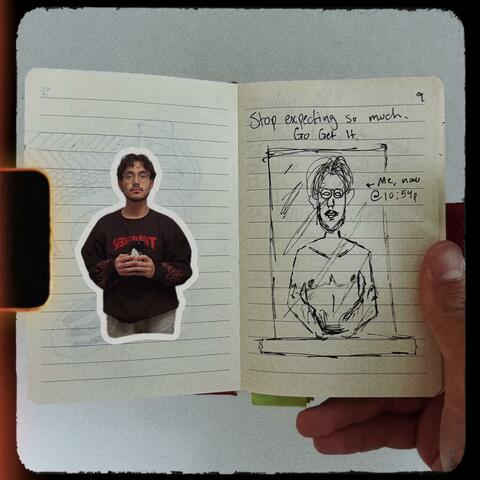 9
Stop expecting so much.
Go Get It.
← Me, now
@10:54p